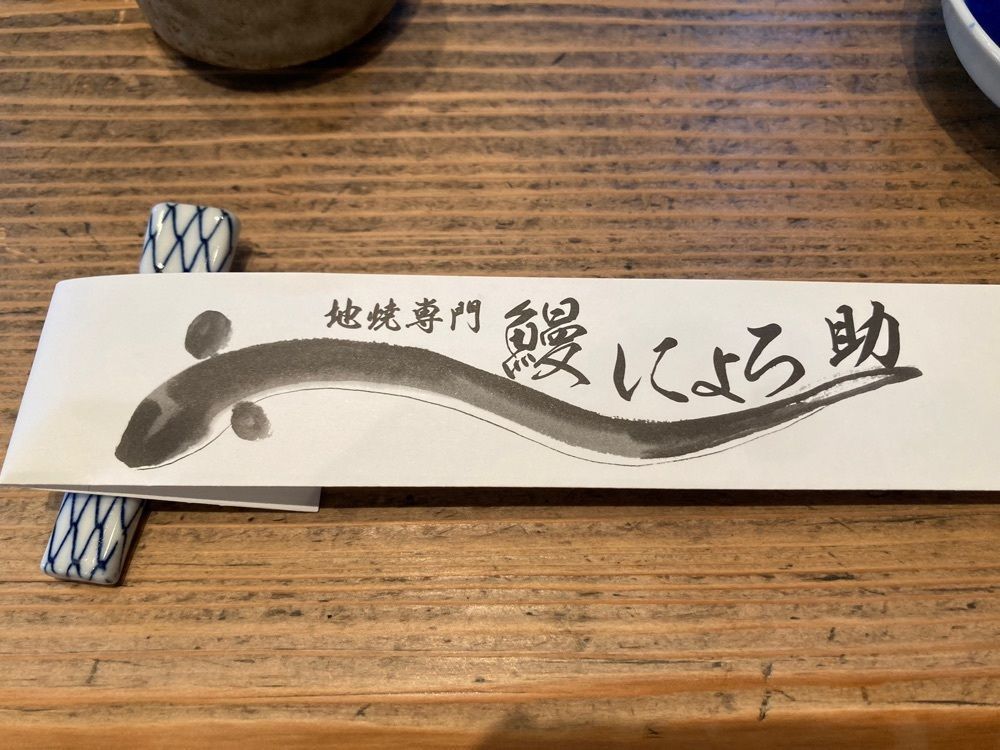 地焼専門 鰻 にょろ助